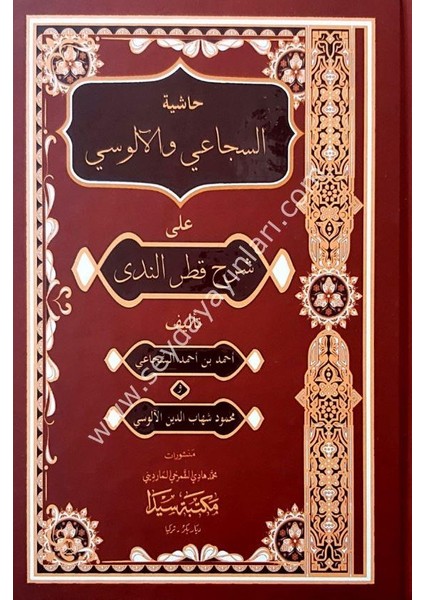 حاشية
السجاعي والآلوسي
على
شرح قطر الندى
تأليف
أحمد بن أحمد السجاعي
و
محمود شهاب الدين الآلوسي
منشورات
محمد هادي الشمرخي المارديني
مكتبة سيدا
ديار بكر - تركيا
www.seydayayinlari.com